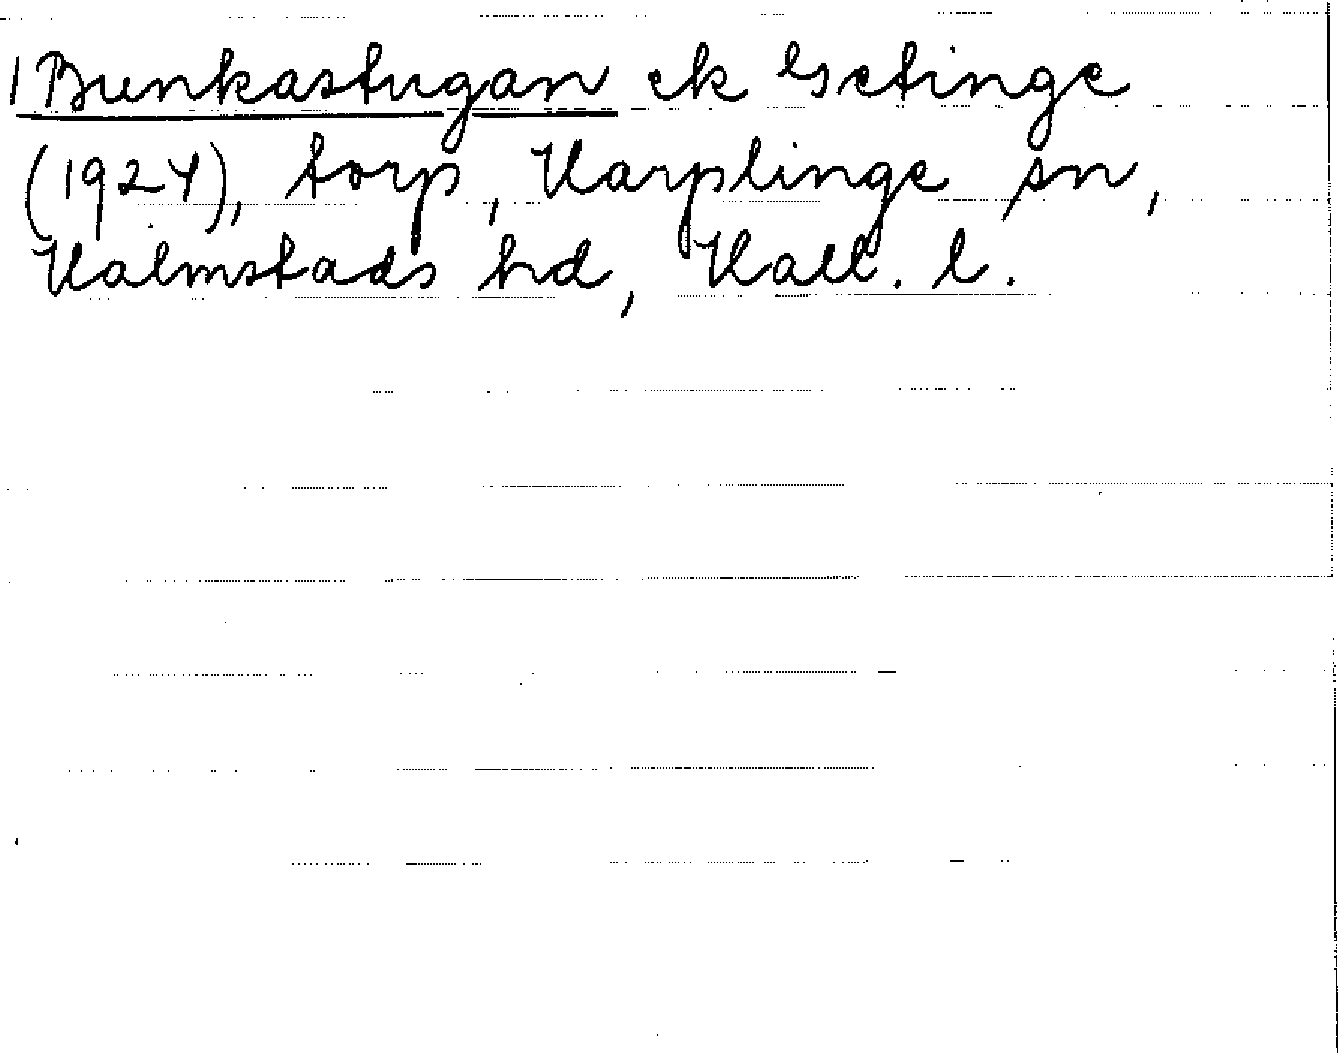 1 Bunkastugan ek Getinge
(1924), torp, Harplinge sn,
Halmstads hd, Hall. l.